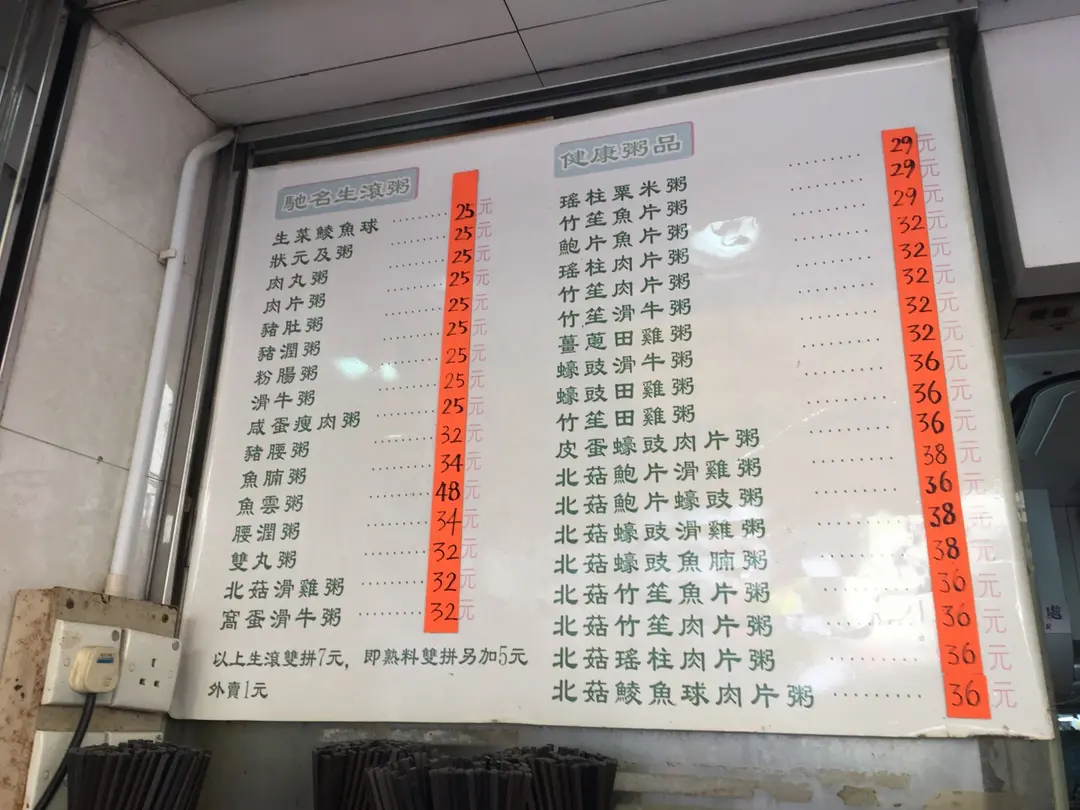 馳名生滾粥
生菜鯪魚球 ........ 25元
狀元及粥 ........ 25元
肉丸粥 ........ 25元
肉片粥 ........ 25元
豬肚粥 ........ 25元
豬潤粥 ........ 25元
粉腸粥 ........ 25元
滑牛粥 ........ 25元
咸蛋瘦肉粥 ........ 25元
豬腰粥 ........ 32元
魚腩粥 ........ 34元
魚雲粥 ........ 48元
腰潤粥 ........ 34元
雙丸粥 ........ 32元
北菇滑雞粥 ........ 32元
窩蛋滑牛粥 ........ 32元
以上生滾雙拼7元，即熟料雙拼另加5元
外賣1元
健康粥品
瑤柱粟米粥 ........ 29元
竹笙魚片粥 ........ 29元
鮑片魚片粥 ........ 29元
瑤柱肉片粥 ........ 32元
竹笙肉片粥 ........ 32元
竹笙滑牛粥 ........ 32元
薑蔥田雞粥 ........ 32元
蠔豉滑牛粥 ........ 32元
蠔豉田雞粥 ........ 36元
竹笙田雞粥 ........ 36元
皮蛋蠔豉肉片粥 ........ 36元
北菇鮑片滑雞粥 ........ 38元
北菇鮑片蠔豉粥 ........ 36元
北菇蠔豉滑雞粥 ........ 38元
北菇蠔豉魚腩粥 ........ 38元
北菇竹笙魚片粥 ........ 36元
北菇竹笙肉片粥 ........ 36元
北菇瑤柱肉片粥 ........ 36元
北菇鯪魚球肉片粥 ........ 36元
處